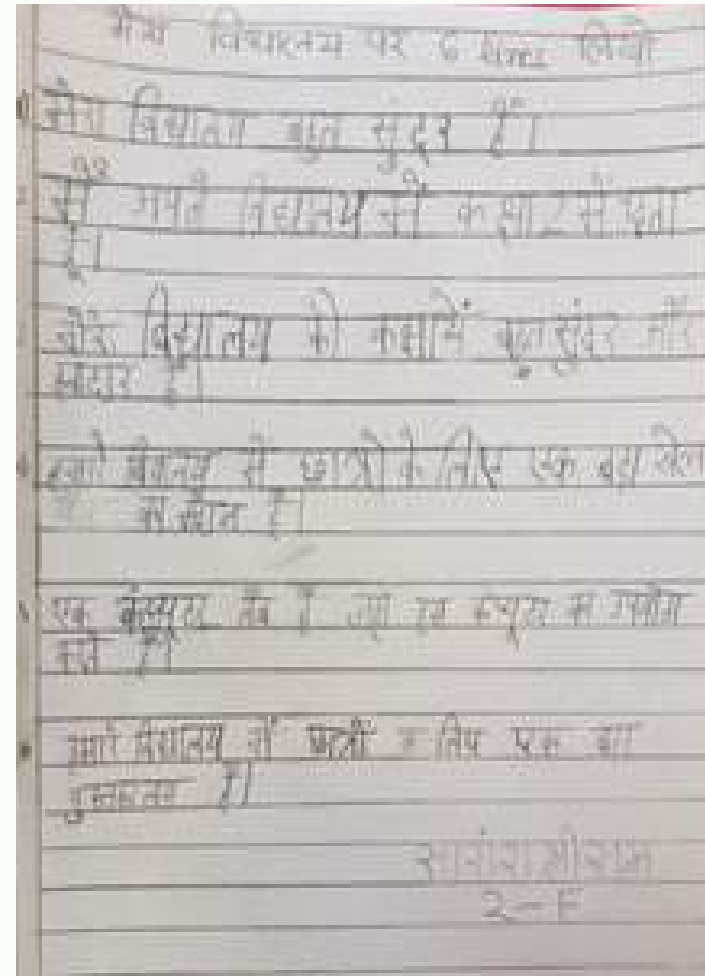 मेरा विद्यालय पर 6 lines लिखो
मेरा विद्यालय बहुत सुंदर है।
में अपने विद्यालय में कक्षा 2 में पढ़ता
हूँ।
मेरे विद्यालय की कक्षायें बहुत सुंदर और
है।
हमारे विद्यालय में छात्रों के लिए एक बड़ा खेल
का मैदान है।
एक कंप्यूटर लैब है जहाँ हम कंप्यूटर का उपयोग
करते हैं।
हमारे विद्यालय में छात्रों के लिए एक बड़ा
पुस्तकालय है।
2-F